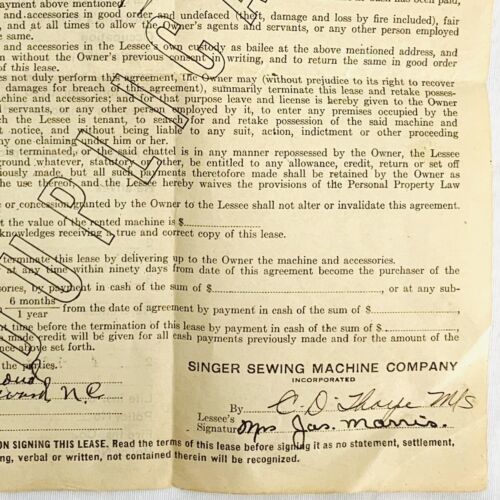 payment above mentioned
and accessories in good order and undefaced (theft, damage and loss by fire included), fair
and at all times to allow the Owner's agents and servants, or any other person employed
same.
and accessories in the Lessee's own custody as bailee at the above mentioned address, and
without the Owner's previous consent in writing, and to return the same in good order
of this lease.
does not duly perform this agreement, the Owner may (without prejudice to its right to recover
damages for breach of this agreement), summarily terminate this lease and retake posses-
machine and accessories; and for that purpose leave and license is hereby given to the Owner
servants, or any other person employed by it, to enter any premises occupied by the
the Lessee is tenant, to search for and retake possession of the said machine and
notice, and without being liable to any suit, action, indictment or other proceeding
any one claiming under him or her.
is terminated, or the said chattel is in any manner repossessed by the Owner, the Lessee
ground whatever, statutory or other, be entitled to any allowance, credit, return or set off
previously made, but all such payments theretofore made shall be retained by the Owner as
the use thereof, and the Lessee hereby waives the provisions of the Personal Property Law
or concession granted by the Owner to the Lessee shall not alter or invalidate this agreement.
the value of the rented machine is $
acknowledges receiving a true and correct copy of this lease.
terminate this lease by delivering up to the Owner the machine and accessories.
at any time within ninety days from date of this agreement become the purchaser of the
by payment in cash of the sum of $ , or at any sub-
6 months
1 year
from the date of agreement by payment in cash of the sum of $
time before the termination of this lease by payment in cash of the sum of $
made credit will be given for all cash payments previously made and for the amount of the
above set forth.
the parties.
N.C.
SINGER SEWING MACHINE COMPANY
INCORPORATED
By C D Thorpe M/S
Lessee's
Signature Mrs Jas. Morris.
ON SIGNING THIS LEASE. Read the terms of this lease before signing it as no statement, settlement,
verbal or written, not contained therein will be recognized.
DUPLICA